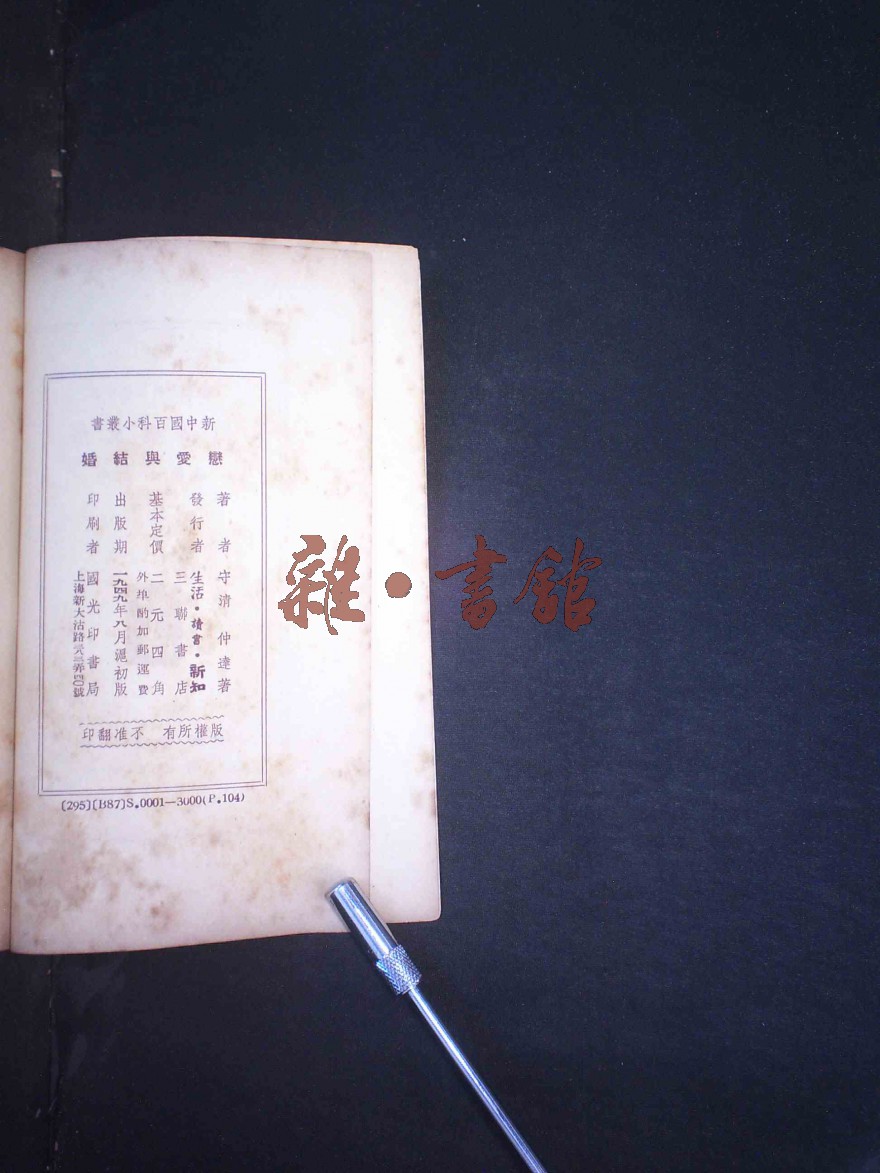 新中國百科小叢書
戀愛與結婚
著者 守清 仲達著
發行者 生活·讀書·新知
三聯書店
基本定價 二元四角
外埠酌加郵運費
出版期 一九四九年八月滬初版
印刷者 國光印書局
上海新大沽路
版權所有 不准翻印
[295][B87]S.0001—3000(P.104)
雜·書館